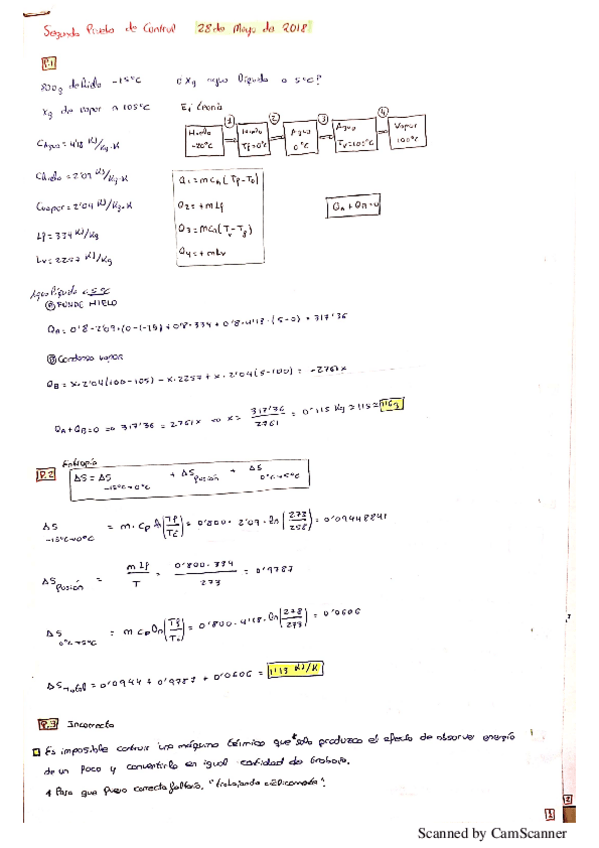 Segunda Prueba de Control 28 de Mayo de 2018
P.1
800g de hielo -15°C
¿ Xg agua líquida a 5°C?
Xg de vapor a 105°C
Ejercicio
① ② ③ ④
Hielo -20°C
Hielo Tf=0°C
Agua 0°C
Agua Tv=100°C
Vapor 100°C
CAgua = 4'18 KJ/Kg·K
Chielo = 2'09 KJ/Kg·K
Cvapor = 2'04 KJ/Kg·K
Lf = 334 KJ/Kg
Lv = 2257 KJ/Kg
Q1 = mCh(Tf-T0)
Q2 = +mLf
Q3 = mCa(Tv-Tf)
Q4 = +mLv
QA + QB = 0
Agua líquida a 5°C
Ⓐ FUNDE HIELO
QA = 0'8·2'09·(0-(-15)) + 0'8·334 + 0'8·4'18·(5-0) = 317'36
Ⓑ Condensa vapor
QB = X·2'04(100-105) - X·2257 + X·2'04(5-100) = -2761X
QA+QB=0 ⇒ 317'36 = 2761X ⇒ X = 317'36/2761 = 0'115 Kg ≈ 115 ≈ 116g
P.2 Entropía
ΔS = ΔS -15°C→0°C + ΔS fusión + ΔS 0°C→5°C
ΔS -15°C→0°C = m·Cp ln(Tf/T0) = 0'800·2'09·ln(273/258) = 0'09448841
ΔS fusión = m Lf/T = 0'800·334/273 = 0'9787
ΔS 0°C→5°C = m Cp ln(Tf/T0) = 0'800·4'18·ln(278/273) = 0'0606
ΔS Total = 0'0944 + 0'9787 + 0'0606 = 1'13 KJ/K
P.3 Incorrecto
Es imposible construir una máquina térmica que solo produzca el efecto de absorver energía
de un foco y convertirla en igual cantidad de trabajo.
Para que fuera correcta faltaría, "trabajando cíclicamente".
1
2
Scanned by CamScanner